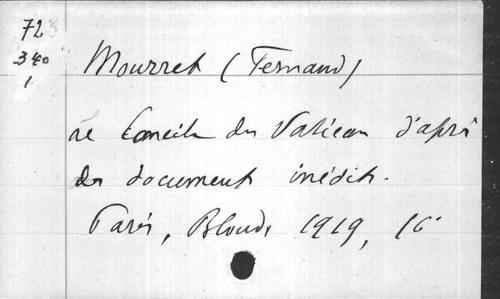 72
340
1
Mourret (Fernand)
Le Concile du Vatican d'après
des documents inédits.
Paris, Bloud, 1919, 16°